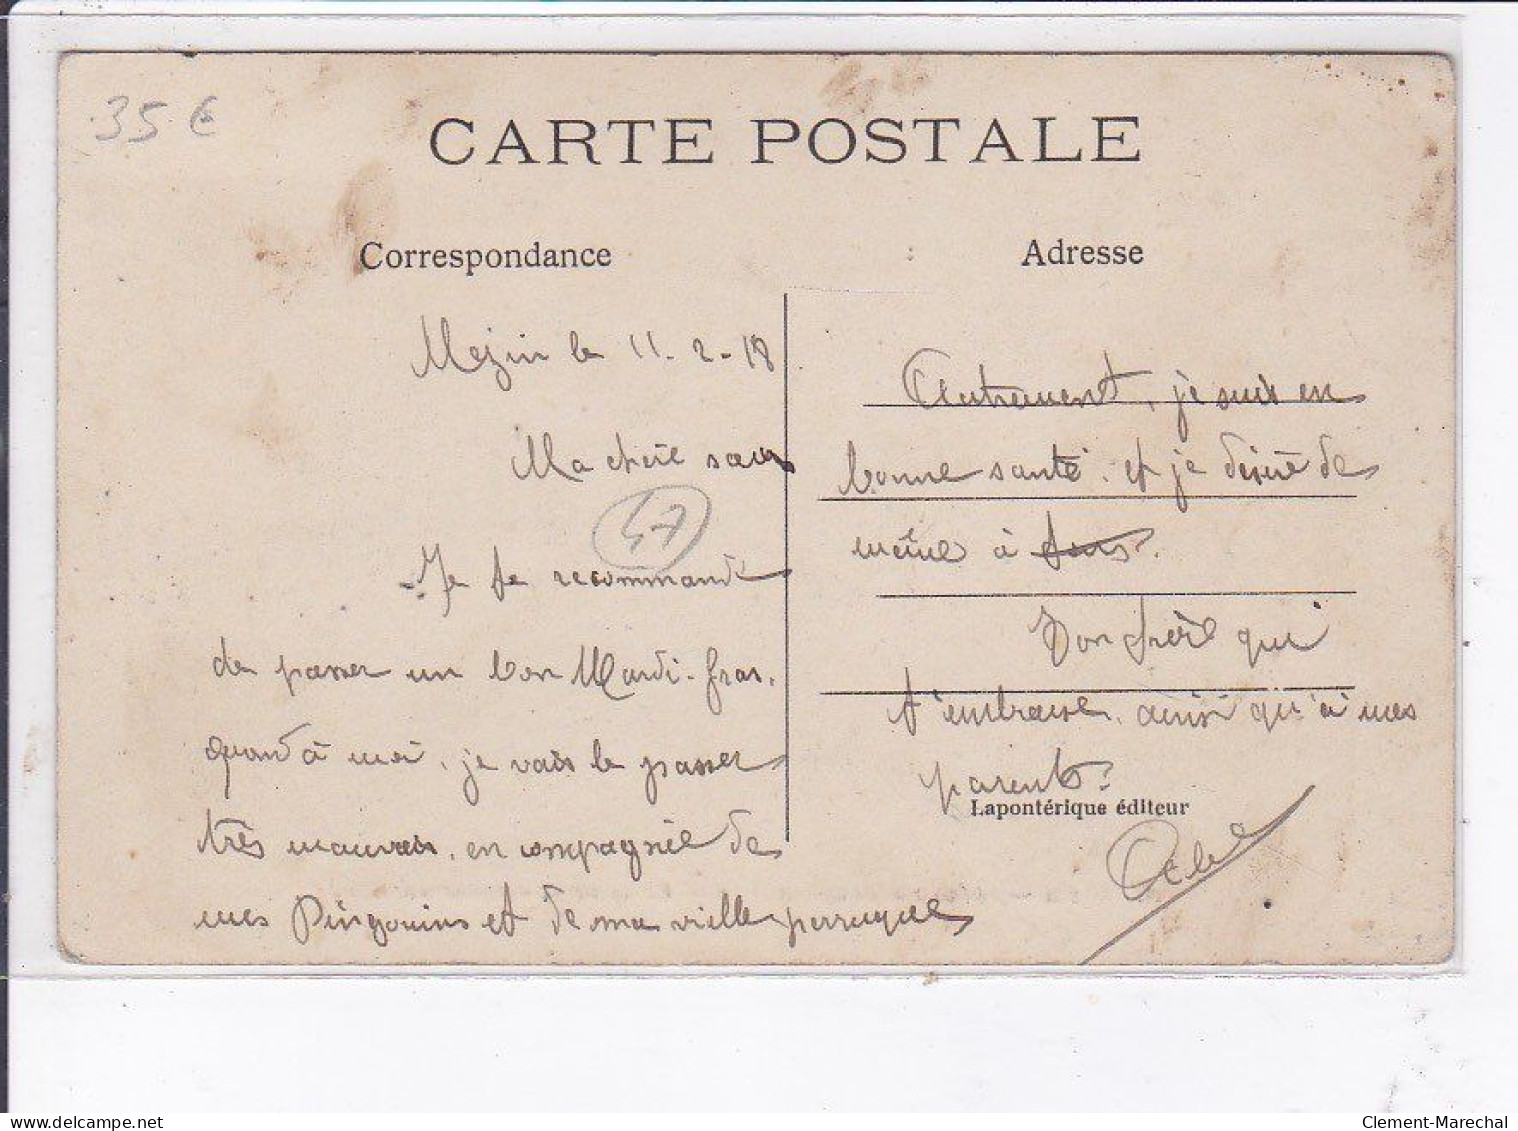 35 €
CARTE POSTALE
Correspondance
Adresse
Mezin le 11-2-18
Ma chère sœur
47
Je te recommande
de passer un bon Mardi-gras.
quand à moi, je vais le passer
très mauvais, en compagnie de
mes Pingouins et de ma vieille perruque
Autrement, je suis en
bonne santé. et je désire de
même à tous.
Ton frère qui
t'embrasse, ainsi qu'à mes
parents.
Lapontérique éditeur
delcampe.net
Clement-Marechal